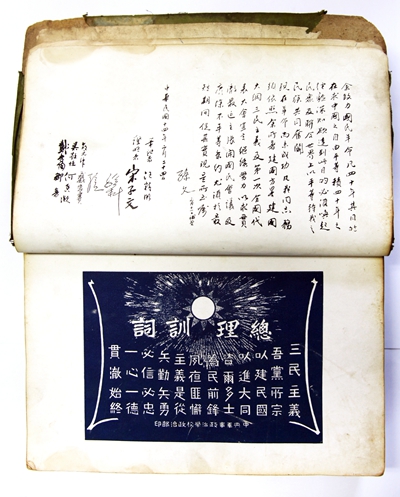 余致力國民革命凡四十年其目的
在求中國之自由平等積四十年之
經驗深知欲達到此目的必須喚起
民眾及聯合世界上以平等待我之
民族共同奮鬥
現在革命尚未成功凡我同志務
須依照余所著建國方略建國
大綱三民主義及第一次全國代
表大會宣言繼續努力以求貫
徹最近主張開國民會議及
廢除不平等條約尤須於最
短期間促其實現是所至囑
孫文
中華民國十四年二月二十四日
筆記者 汪精衛
證明者 宋子文
吳敬恆
何香凝
總理訓詞
三民主義
吾黨所宗
以建民國
以進大同
咨爾多士
為民前鋒
夙夜匪懈
主義是從
矢勤矢勇
必信必忠
一心一德
貫澈始終
中央軍事政治學校政治部印